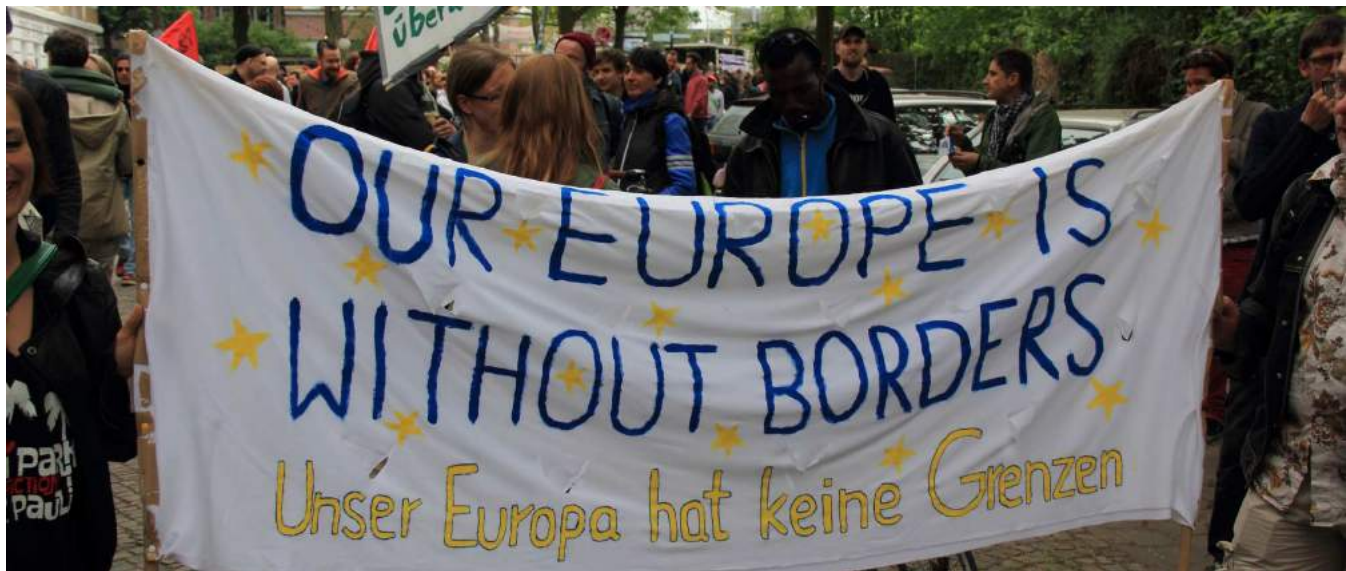 über
OUR EUROPE IS
WITHOUT BORDERS
Unser Europa hat keine Grenzen
PARK
PAULI